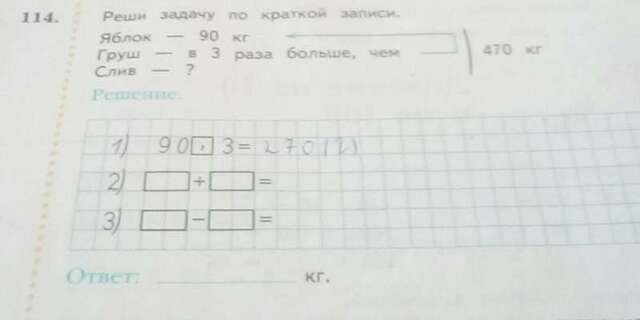 114. Реши задачу по краткой записи.
Яблок — 90 кг
Груш — в 3 раза больше, чем
Слив — ?
470 кг
Решение.
1) 90 · 3 = 270 (
2) + =
3) − =
Ответ: кг.